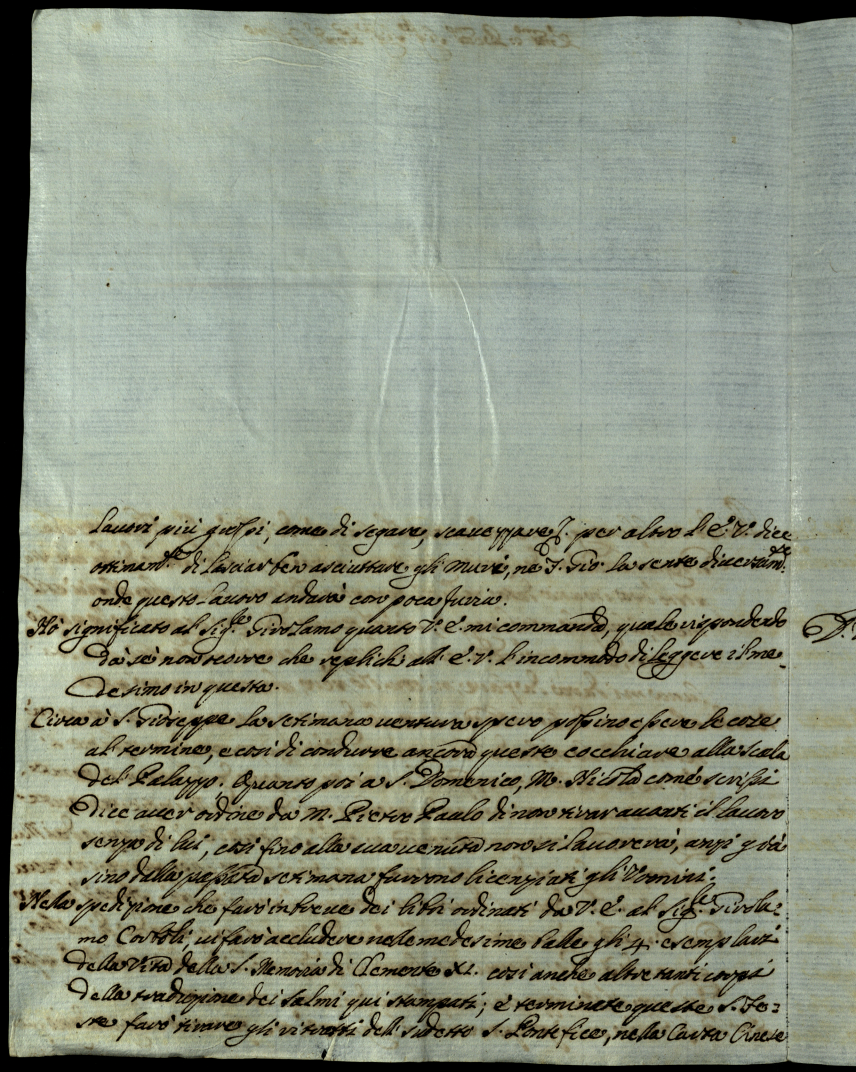 Lauori più grossi, come di segare, scauezzare &. per altro l'E.V. dice
ottimam.te di lasciar ben asciuttare gli muri, nè S. Gio: la sente diuersam.te
onde questo lauoro andarà con poca furia.
Hò significato al Sig.re Girolamo quanto V.E. mi commanda, quale rispondendo
da sè non occorre che replichi all'E.V. l'incommodo di leggere il me-
desimo in questa.
Circa à S. Giuseppe la settimana uentura spero possino essere le cose
al termine, e cosi di condurre ancora queste cocchiare alla scala
del Palazzo. Quanto poi a S. Domenico, M. Nicola come scrissi
dice auer ordine da M. Pietro Paulo di non tirar auanti il lauoro
senza di lui, così fino alla sua uenuta non si lauorerà, anzi già
sino dalla passata settimana furrono licenziati gli Vomini.
Nella spedizione che farò in breue dei libri ordinati da V.E. al Sig.re Girola=
mo Costoli, ui farò accludere nelle medesime balle gli 4. esemplari
della Vita della S. Memoria di Clemente XI. cosi anche altre tanti corpi
della tradizione dei Salmi qui stampati; e terminate queste S. Fe=
ste farò tirare gli ritratti dell' sudetto S. Pontefice, nella Carta Cinese